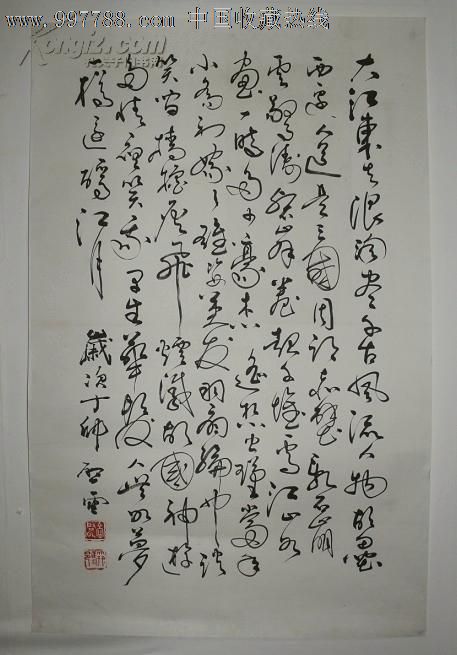 www.997788.com 中国收藏热线
大江東去浪淘盡千古風流人物故壘
西邊人道是三國周郎赤壁亂石崩
雲驚濤裂岸卷起千堆雪江山如
畫一時多少豪杰遙想公瑾當年
小喬初嫁了雄姿英發羽扇綸巾談
笑間檣櫓灰飛煙滅故國神遊
多情應笑我早生華髮人如夢
一樽還酹江月 歲次丁卯